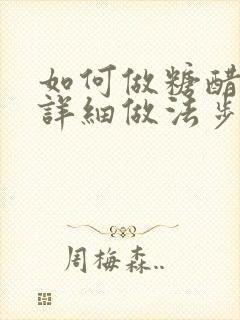 如何做糖醋
詳細做法步
周梅森..